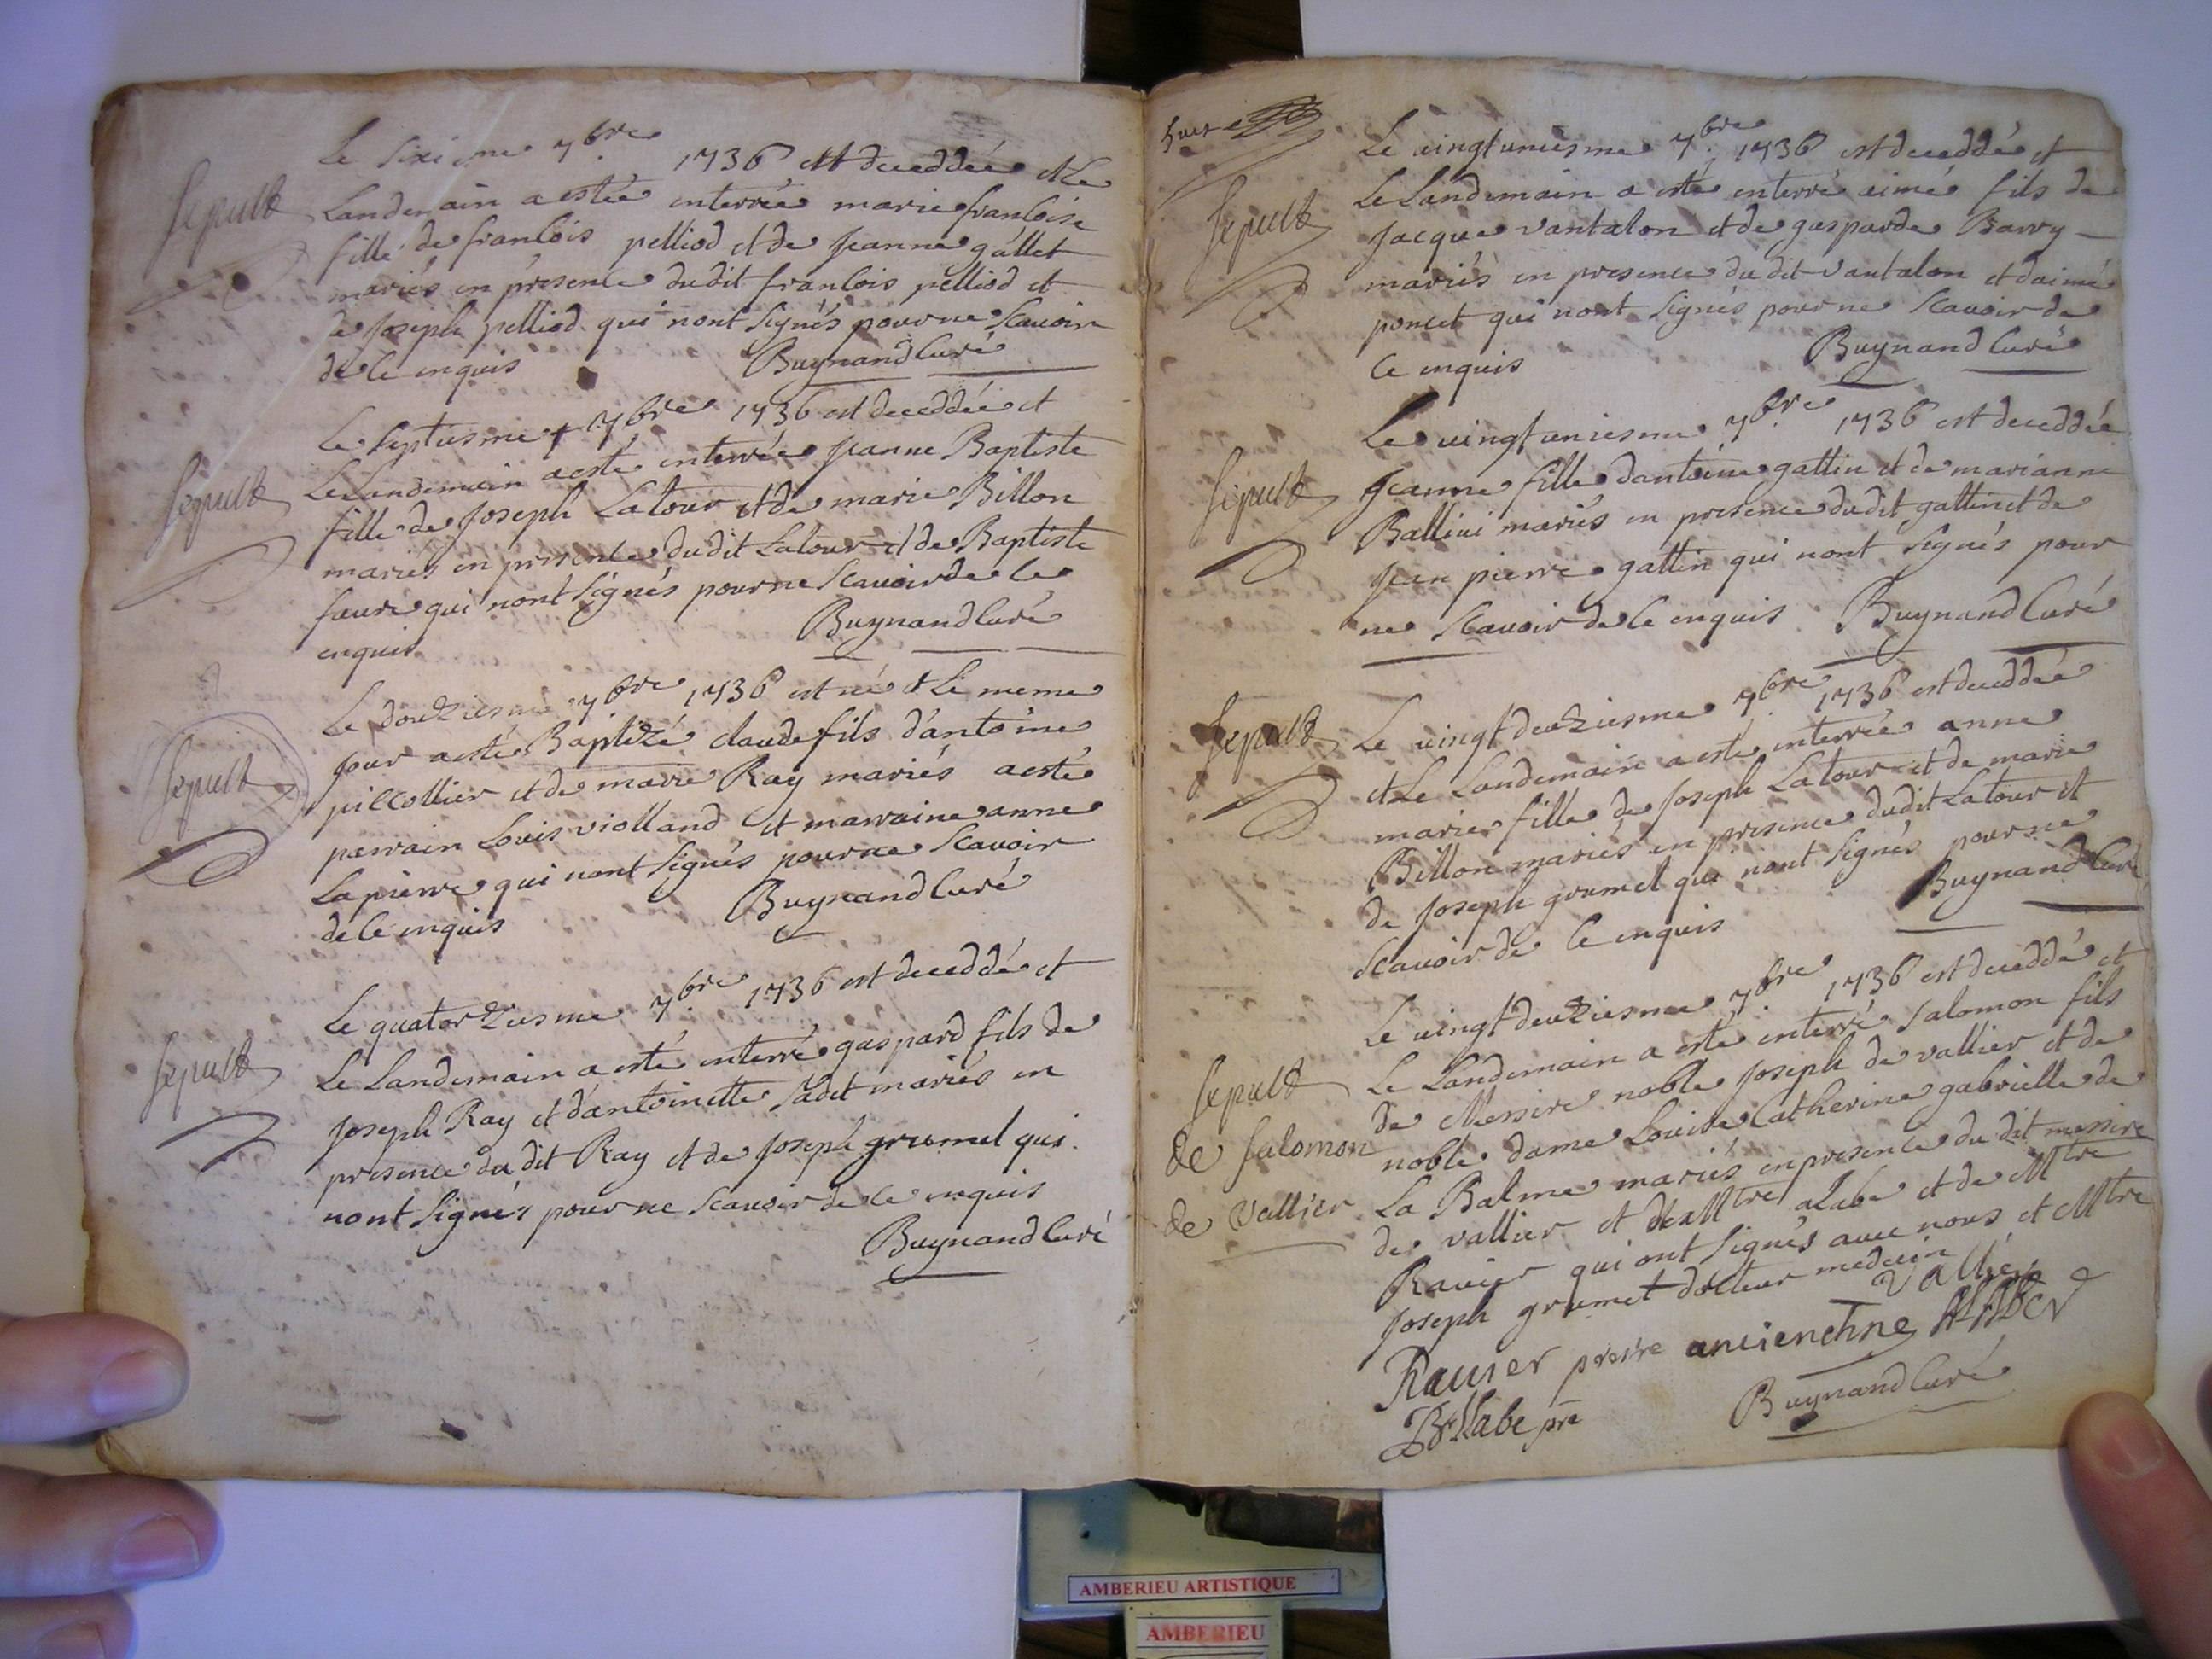 Le sixiesme 7bre 1736 est deceddée et Le
Sepult Landemain a estée enterrée marie francoise
fille de francois pelliod et de jeanne gallet
mariés en présence dudit francois pelliod et
de joseph pelliod qui nont signés pour ne scavoir
de ce enquis Buynand Curé
Le septiesme 7bre 1736 est deceddée et
Sepult Le Landemain a esté enterrée jeanne Baptiste
fille de joseph Latour et de marie Billon
mariés en présence dudit Latour et de Baptiste
faure qui nont signés pour ne scavoir de ce
enquis Buynand Curé
Le douziesme 7bre 1736 est né et Le meme
Sepult jour a esté Baptizé claude fils d'antoine
pilcollier et de marie Ray mariés a esté
parrain Louis violland et marraine anne
Lapierre qui nont signés pour ne scavoir
de ce enquis Buynand Curé
Le quatorziesme 7bre 1736 est deceddé et
Sepult Le Landemain a esté enterré gaspard fils de
joseph Ray et d'antoinette sadet mariés en
presence du dit Ray et de joseph grumel qui
nont signés pour ne scavoir de ce enquis
Buynand Curé
Le vingtuniesme 7bre 1736 est deceddé et
Sepult Le Landemain a esté enterré aimé fils de
jacque vantalon et de gasparde Barry
mariés en presence du dit vantalon et daimé
poncet qui nont signés pour ne scavoir de
ce enquis Buynand Curé
Le vingtuniesme 7bre 1736 est deceddée
Sepult jeanne fille dantoine gattin et de marianne
Ballivi mariés en presence dudit gattin et de
jean pierre gattin qui nont signés pour
ne scavoir de ce enquis Buynand Curé
Sepult Le vingt deuziesme 7bre 1736 est deceddée
et Le Landemain a esté enterrée anne
marie fille de joseph Latour et de marie
Billon mariés en presence dudit Latour et
de joseph grumel qui nont signés pour ne
scavoir de ce enquis Buynand Curé
Le vingt deuziesme 7bre 1736 est deceddé et
Sepult Le Landemain a esté enterré salomon fils
de Messire noble joseph de vallier et de
de salomon noble dame Louise Catherine gabrielle de
de vallier La Balme mariés en presence du dit messire
de vallier et de Mtre aLabe et de Mtre
Ravier qui ont signés avec nous et Mtre
joseph grumet docteur medecin
Vallier
Ravier prestre
Labe pre Buynand Curé
AMBERIEU ARTISTIQUE
AMBERIEU